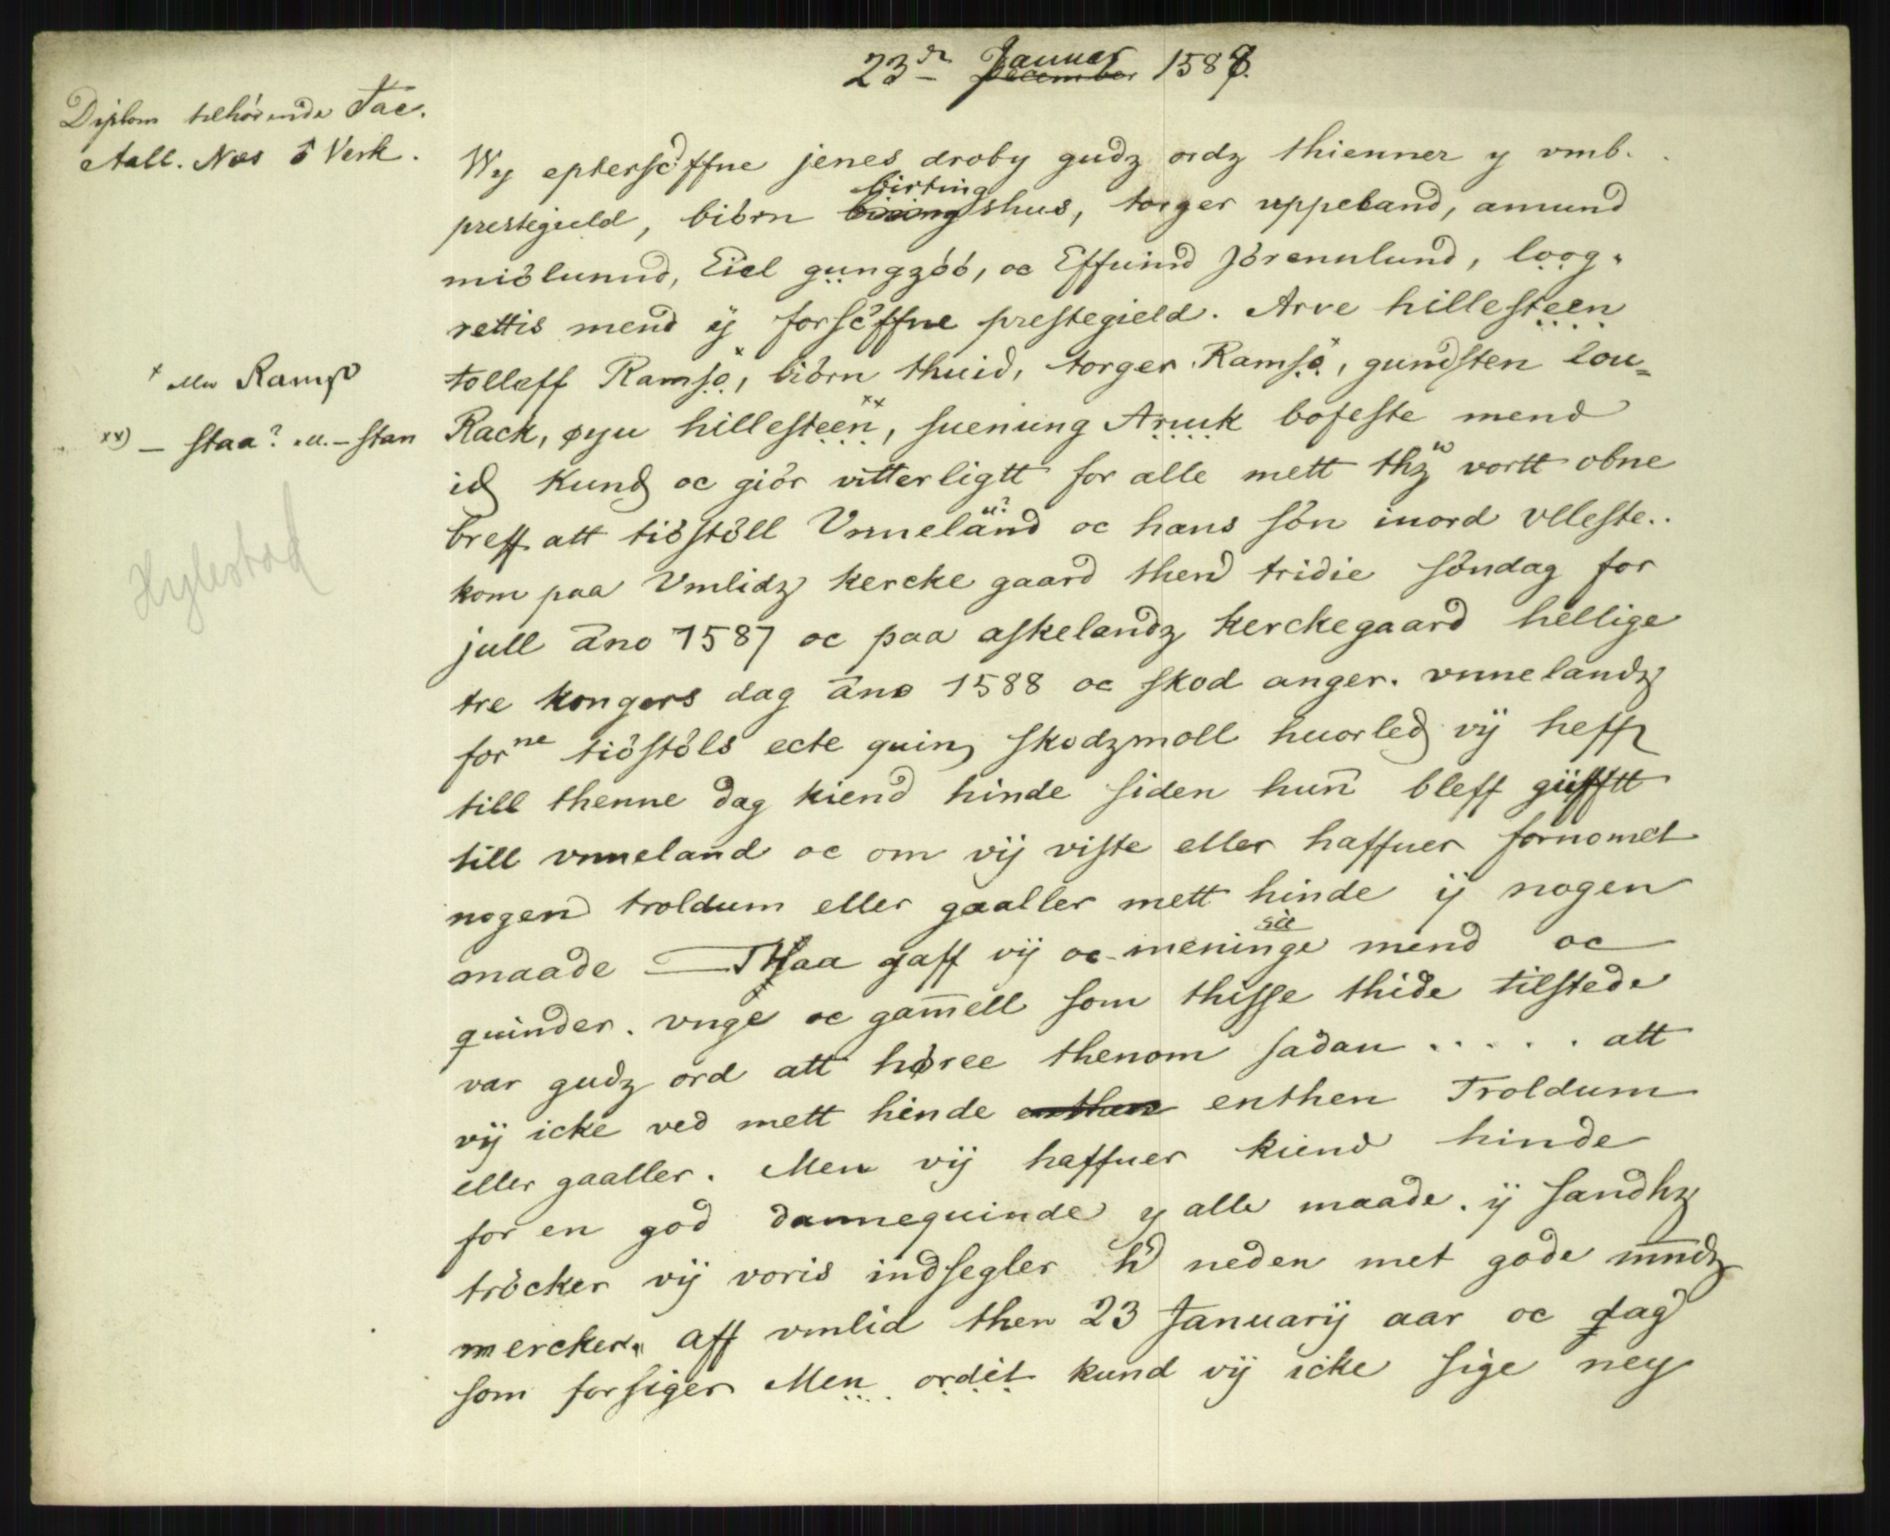 23de Januar December 1588.
Diplom tilhörende Jac.
Aall. Næs & Verk.
Wy epterscffne jenes droby gudz ordz thienner y vmb.
prestegield, biörn birting shus, torger uppeland, amund
miölunnd, Eiel gungzöö, oc Effuind Jörennlund, loog-
rettis mend ij forscffne prestegield. Arve hillesteen
tolleff Ramsø×, biörn thuid, torger Ramsø×, gundsten lou=
Rack, øyu hillesteen××, suenung Aruuk bofeste mend
× eller Ramsø
××) – staa? ell. – stan
Hylestad
id kund oc giör vitterligtt for alle mett thz vortt obne
breff att tiöstöll Vnneland oc hans sön inord vlleste..
kom paa Vmlidz kercke gaard thend tridie söndag for
jull āno 1587 oc paa askelandz kerckegaard hellige
tre kongers dag āno 1588 oc skod anger. vnnelandz
forne tiöstöls ecte quin, skudzmoll huorled vij heff
till thenne dag kiend hinde siden hun bleff güfftt
till vnneland oc om vij viste eller haffuer fornomet
nogen troldum eller gaaller mett hinde ij nogen
maade — Thaa gaff vij oc meninge sic mend oc
quinder. vnge oc gam̄ell som thisse thide tilstede
var gudz ord att høree thenom sadan . . . . . att
vij icke ved mett hinde enthen enthen Troldum
eller gaaller. Men vij haffuer kiend hinde
for en god dannequinde y alle maade. ij sandhz
tröcker vij voris indsegler hd neden met gode mndz
mercker. aff vmlid then 23 Januarij aar oc dag
som forsiger Men ordit kund vij icke sige ney